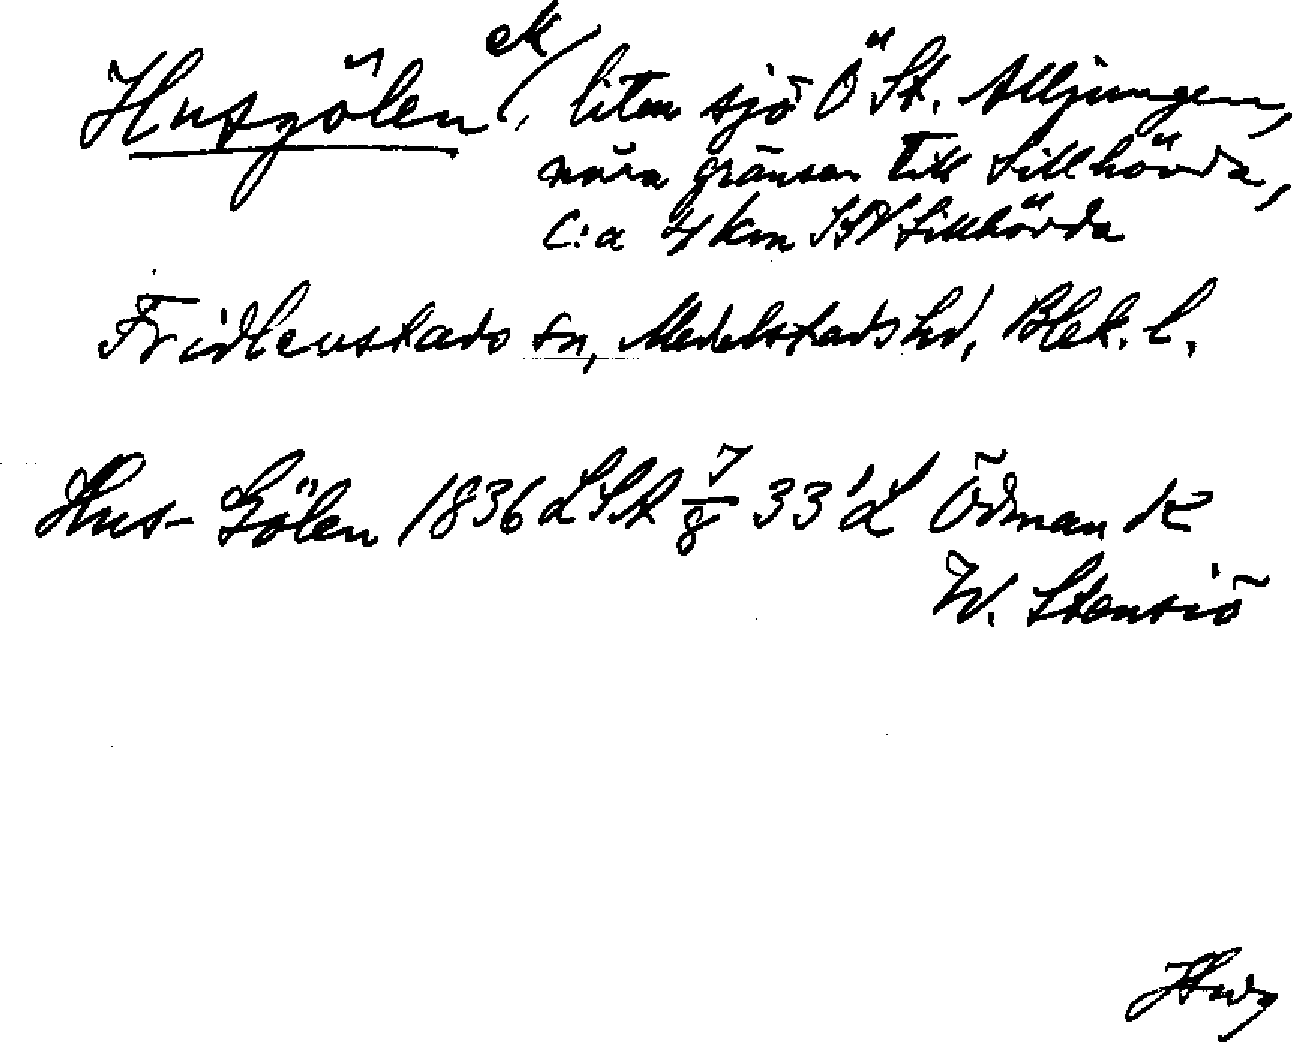 Husgölen ek/, liten sjö Ö St. Alljungen,
nära gränsen till Sillhövda,
c:a 4 km SV Sillhövda
Fridlevstads sn, Medelstads hd, Blek. l.
Hus-Gölen 1836 LSA 7/8 33 L Ödman K
W. Stensiö